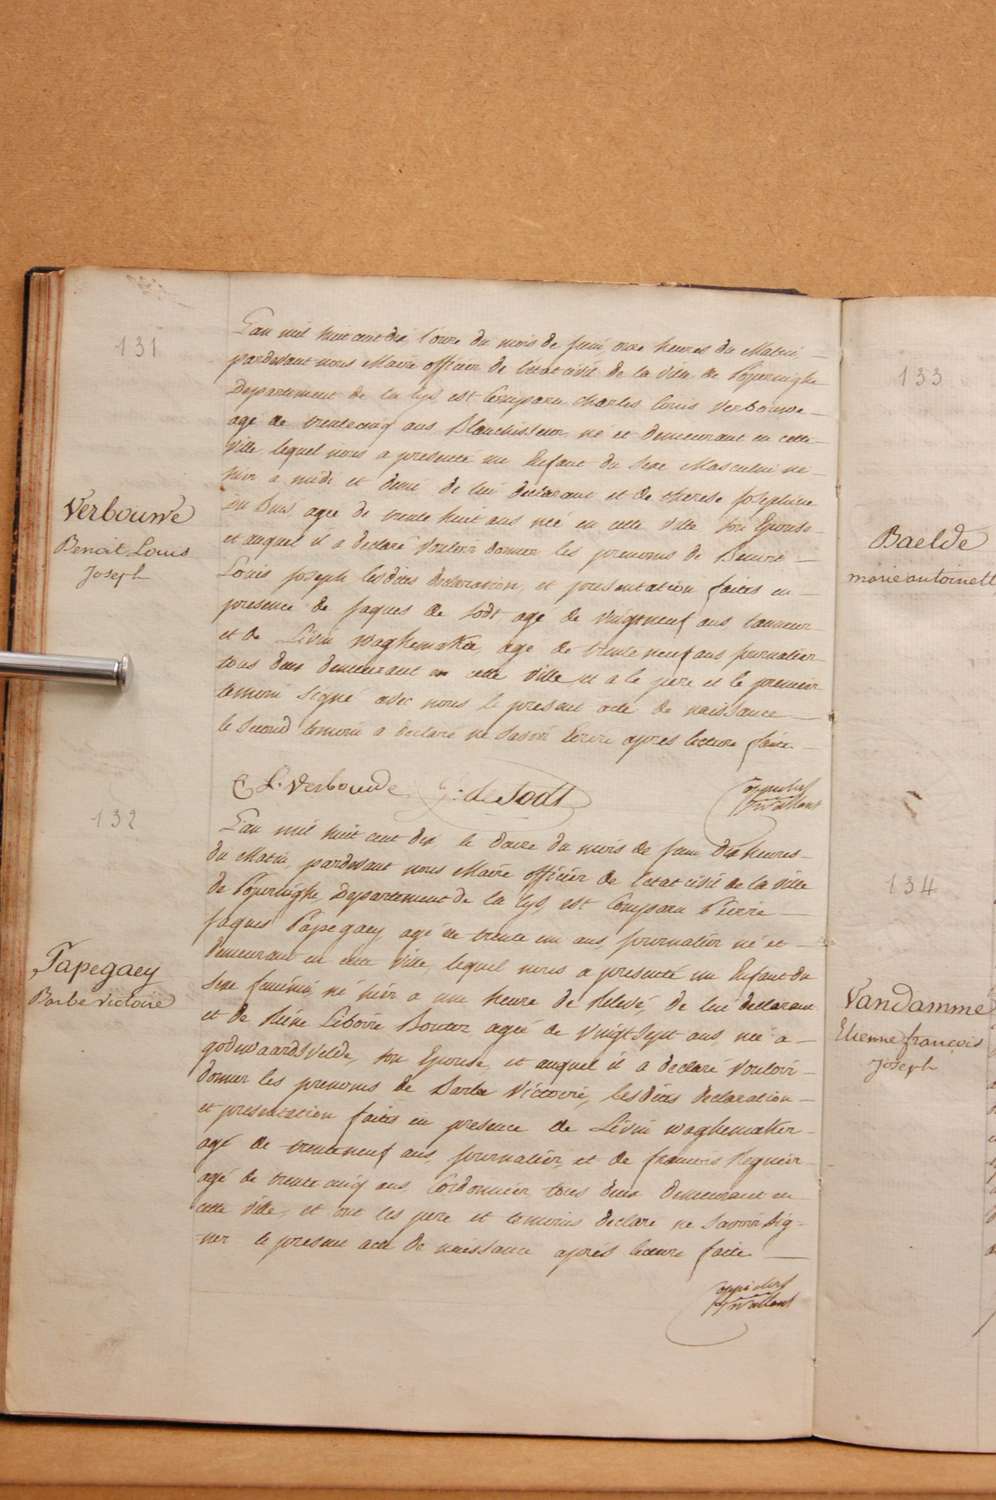 131
L'an mil huit cent dix l'onze du mois de juin onze heures du Matin
pardevant nous Maire officier de l'etat civil de la ville de Poperinghe
Departement de la Lys est Comparu charles Louis Verbouwe
agé de trentecinq ans Blanchisseur né et demeurant en cette
ville lequel nous a presenté un Enfant du Sexe Masculin né
hier a midi et demi de lui declarant et de therese Josephine
agée de trente huit ans née en cette ville son Epouse
et auquel il a declaré vouloir donner les prenoms de Benoit
Louis Joseph lesdites declaration et presentation faites en
presence de Jaques de Sodt agé de vingt neuf ans tanneur
et de Liévin waghemaker agé de trente neuf ans journalier
tous deux demeurant en cette ville et a le pere et le premier
temoin signé avec nous le present acte de naissance
le second temoin a declaré ne savoir Ecrire apres lecture faite
Verbouwe
Benoit Louis
Joseph
C. L. Verbouwe J: de Sodt
132
L'an mil huit cent dix le douze du mois de juin dix heures
du Matin pardevant nous Maire officier de l'etat civil de la ville
de Poperinghe Departement de la Lys est Comparu Pierre
Jaques Papegaey agé de trente un ans journalier né et
demeurant en cette ville, lequel nous a presenté un Enfant du
Sexe féminin né hier a une heure de Relevé, de lui declarant
et de Reine Liboire Bouter agée de vingt sept ans née a
godewaardsvelde, son Epouse, et auquel il a declaré vouloir
donner les prenoms de Barbe Victoire, lesdites declaration
et presentation faites en presence de Liévin waghemaker
agé de trenteneuf ans, journalier, et de francois
agé de trente cinq ans, Cordonnier tous deux demeurant en
cette ville, et ont les pere et temoins declaré ne savoir sig-
ner le present acte de naissance après lecture faite
Papegaey
Barbe victoire
133
Baelde
marie antoinett
134
Vandamme
Etienne françois
Joseph